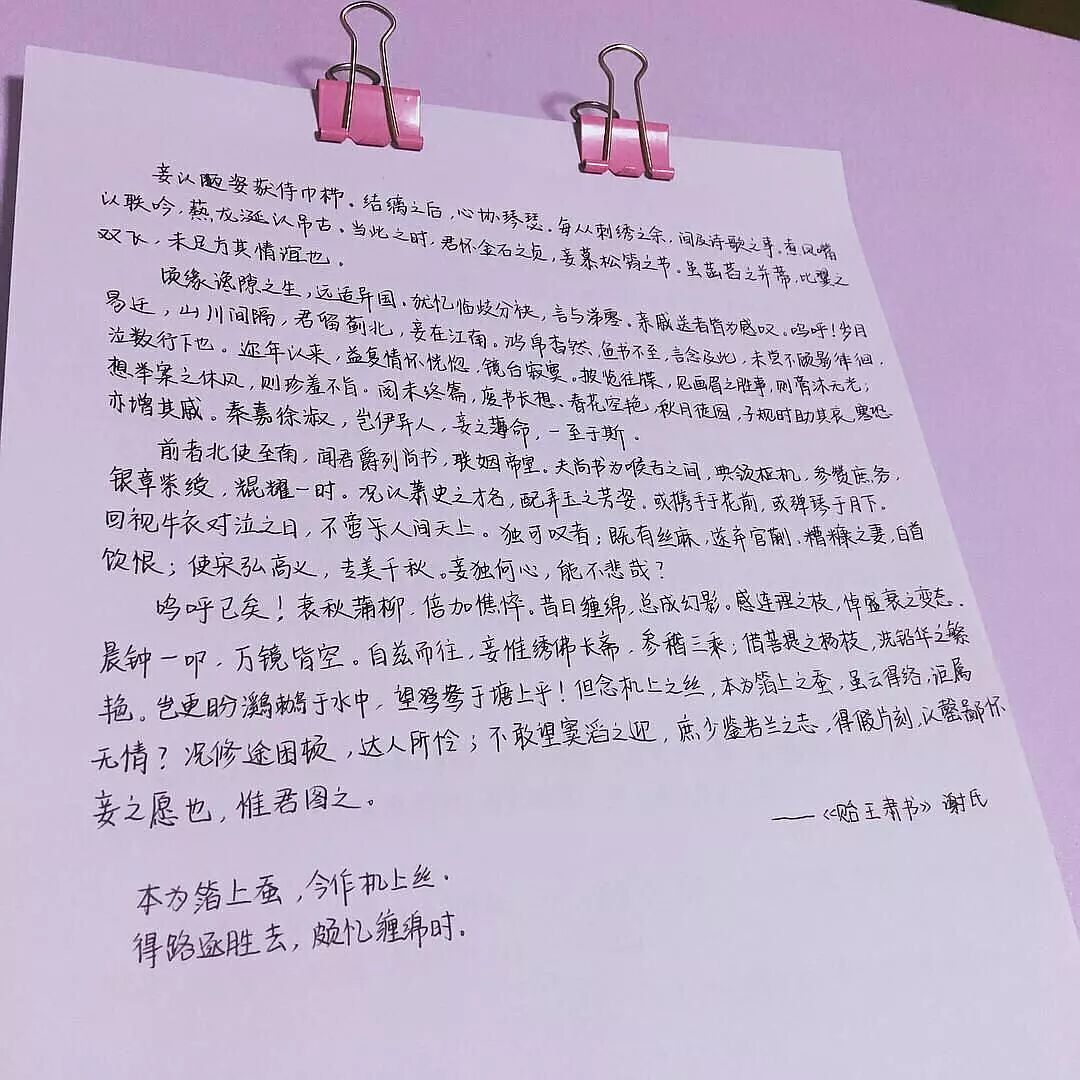 妾以陋姿获侍巾栉。结缡之后，心协琴瑟。每从刺绣之余，间及诗歌之事。煮凤嘴
以联吟，爇龙涎以吊古。当此之时，君怀金石之贞，妾慕松筠之节。虽菡萏之并蒂，比翼之
双飞，未足方其情谊也。
顷缘谗隙之生，远适异国。犹忆临歧分袂，言与涕零。亲戚送者皆为感叹。呜呼！岁月
易迁，山川间隔，君留蓟北，妾在江南。鸿帛杳然，鱼书不至，言念及此，未尝不顾影徘徊，
泣数行下也。迩年以来，益复情怀恍惚，镜台寂寞。披览往牒，见画眉之胜事，则膏沐无光；
想举案之休风，则珍羞不旨。阅未终篇，废书长想。春花空艳，秋月徒圆，子规时助其哀，寒
亦增其戚。秦嘉徐淑，岂伊异人，妾之薄命，一至于斯。
前者北使至南，闻君爵列尚书，联姻帝室。夫尚书为喉舌之间，典领枢机，参赞庶务，
银章紫绶，焜耀一时。况以萧史之才名，配弄玉之芳姿。或携手于花前，或弹琴于月下。
回视牛衣对泣之日，不啻乐人间天上。独可叹者；既有丝麻，遂弃官蒯，糟糠之妻，白首
饮恨；使宋弘高义，专美千秋。妾独何心，能不悲哉？
呜呼已矣！衰秋蒲柳，倍加憔悴。昔日缠绵，总成幻影。感连理之枝，悼盛衰之变态。
晨钟一叩，万镜皆空。自兹而往，妾惟绣佛长斋，参稽三乘；借菩提之杨枝，洗铅华之繁
艳。岂更盼鸂鶒于水中，望鸳鸯于塘上乎！但念机上之丝，本为箔上之蚕，虽云得络，讵属
无情？况修途困顿，达人所怜；不敢望窦滔之迎，庶少鉴若兰之志，得假片刻，以罄鄙怀
妾之愿也，惟君图之。
——《贻王肃书》谢氏
本为箔上蚕，今作机上丝．
得路逐胜去，颇忆缠绵时．